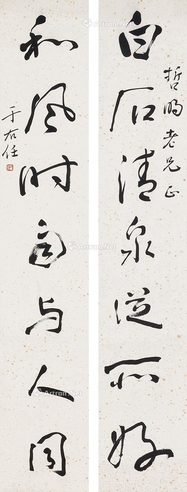 哲明老兄正
白石清泉從所好
和風時雨与人同
于右任